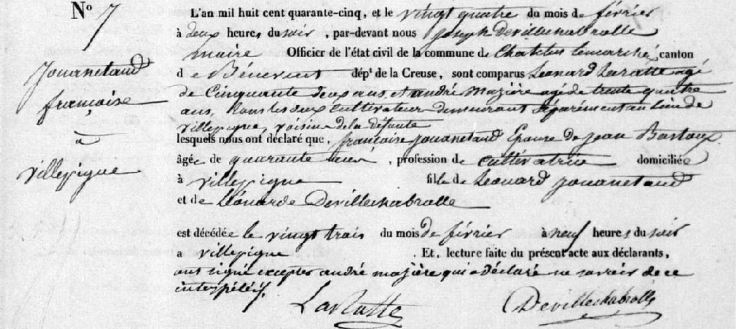 N° 7
Jouanetaud
françoise
à
villepigue
L'an mil huit cent quarante-cinq, et le vingt quatre du mois de février
à deux heures du soir, par-devant nous joseph Devillechabrolle
maire Officier de l'état civil de la commune de Chatelus lemarché, canton
de Bénévent dépt de la Creuse, sont comparus Léonard Laratte agé
de Cinquante ans, et andré Mazière agé de trente quatre
ans, tous les deux Cultivateur demeurant Séparément au lieu de
villepigue, voisins de la défunte
lesquels nous ont déclaré que, françoise jouanetaud Epouse de jean Bastoux
âgée de quarante ans, profession de cultivatrice domiciliée
à villepigue fille de Léonard jouanetaud
et de Léonarde Devillechabrolle
est décédée le vingt trois du mois de février à neuf heures du soir
a villepigue. Et, lecture faite du présent acte aux déclarants,
ont signé excepter andré mazière qui a déclaré ne savoir de ce
interpéllé.
Laratte Devillechabrolle